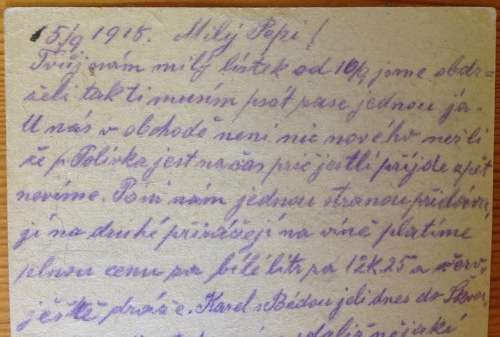 15/9 1915. Milý Pepi!
Tvůj nám milý lístek od 10/9 jsme obdr-
želi tak ti musím psát zase jednou já.
U nás v obchodě není nic nového nežli
že p. Polívka jest na čas pryč jestli přijde zpět
nevíme. Páni nám jednou stranou přidávají
jí na druhé přirážejí na víně platíme
plnou cenu za bílé litr za 1 2K.25 a červ.
ještě dráže. Karel s Bédou jedí dnes do